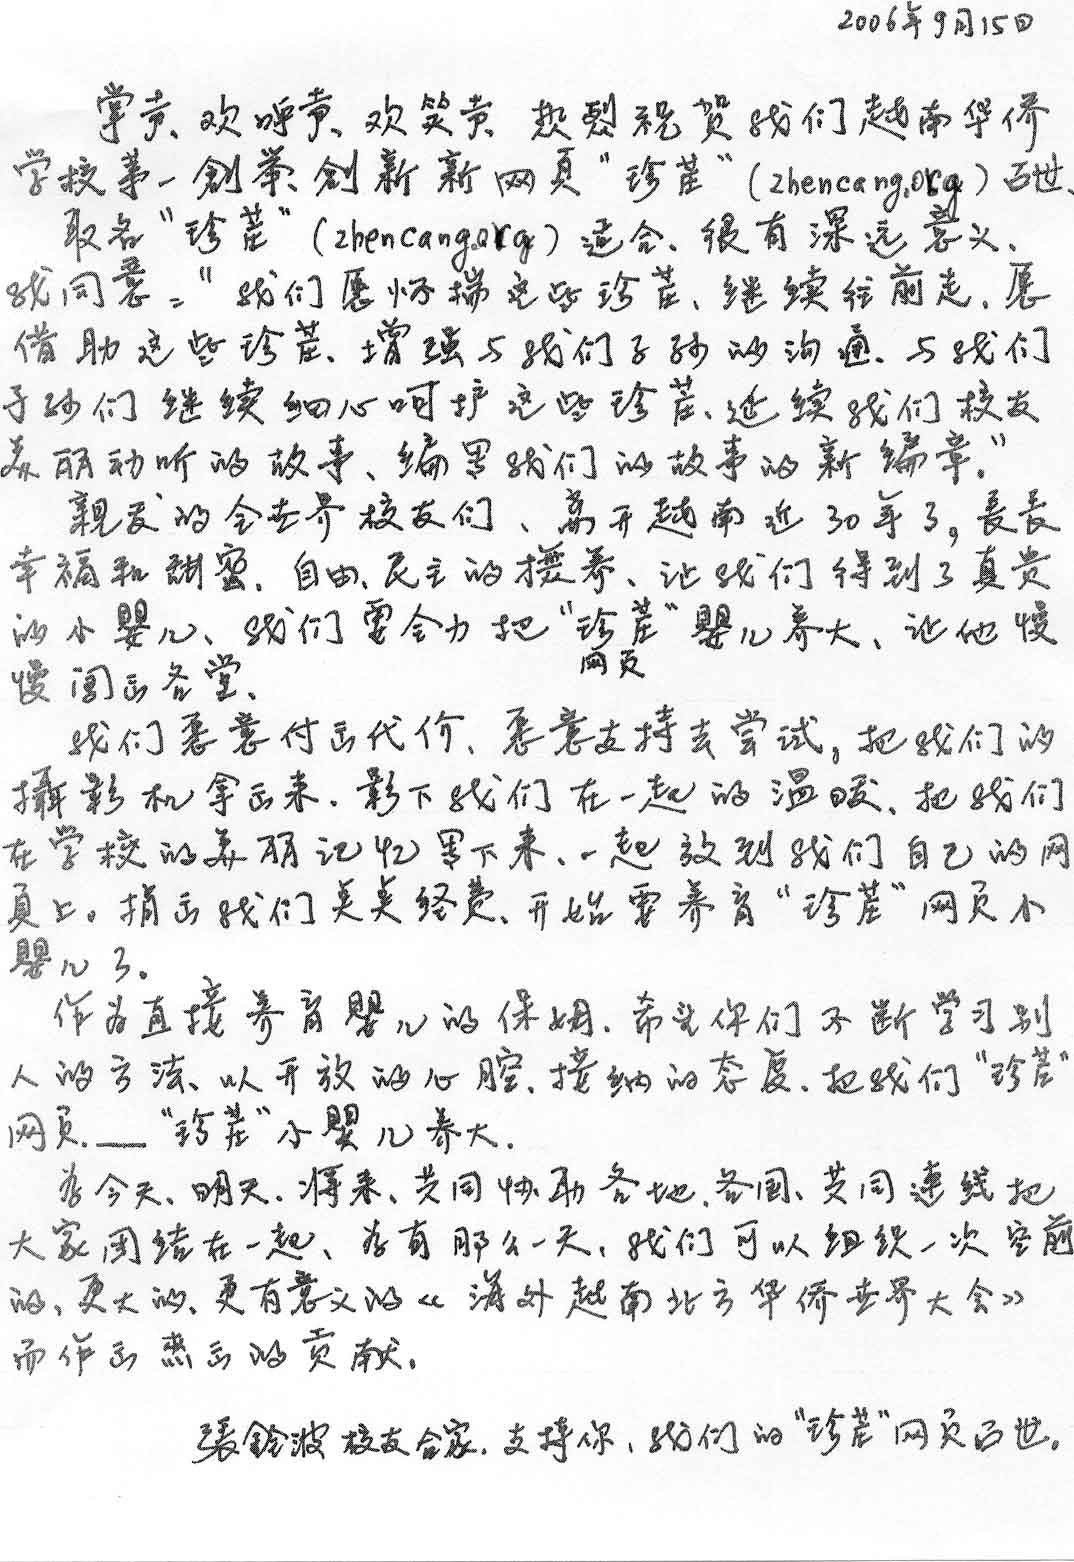 2006年9月15日
掌声、欢呼声、欢笑声、热烈祝贺我们越南华侨
学校第一創举、創新新网页"珍茬"(zhencang.org)面世、
取名"珍茬"(zhencang.org)适合、很有深远意义、
我同意:"我们愿怀揣这些珍茬、继续往前走、愿
借助这些珍茬、增强与我们子孙的沟通、与我们
子孙们继续细心呵护这些珍茬、延续我们校友
美丽动听的故事、编写我们的故事的新编章."
親爱的全世界校友们、离开越南近30年了,長長
幸福和甜蜜、自由、民主的撫养、让我们得到了真贵
的小嬰儿、我们要全力把"珍茬"网页嬰儿养大、让他慢
慢闯出各堂、
我们愿意付出代价、愿意支持去尝试,把我们的
攝影机拿出来、影下我们在一起的温暖、把我们
在学校的美丽记忆写下来、一起放到我们自己的网
页上。捐出我们点点经费、开始要养育"珍茬"网页小
嬰儿了。
作为直接养育嬰儿的保姆、希望你们不断学习别
人的方法、以开放的心腔、接纳的态度、把我们"珍茬"
网页、——"珍茬"小嬰儿养大.
为今天、明天、将来、共同协助各地、各国、共同連线把
大家团结在一起、为有那么一天、我们可以组织一次空前
的、更大的、更有意义的《海外越南北方华侨世界大会》
而作出杰出的贡献.
張銓波校友合家、支持你、我们的"珍茬"网页面世。